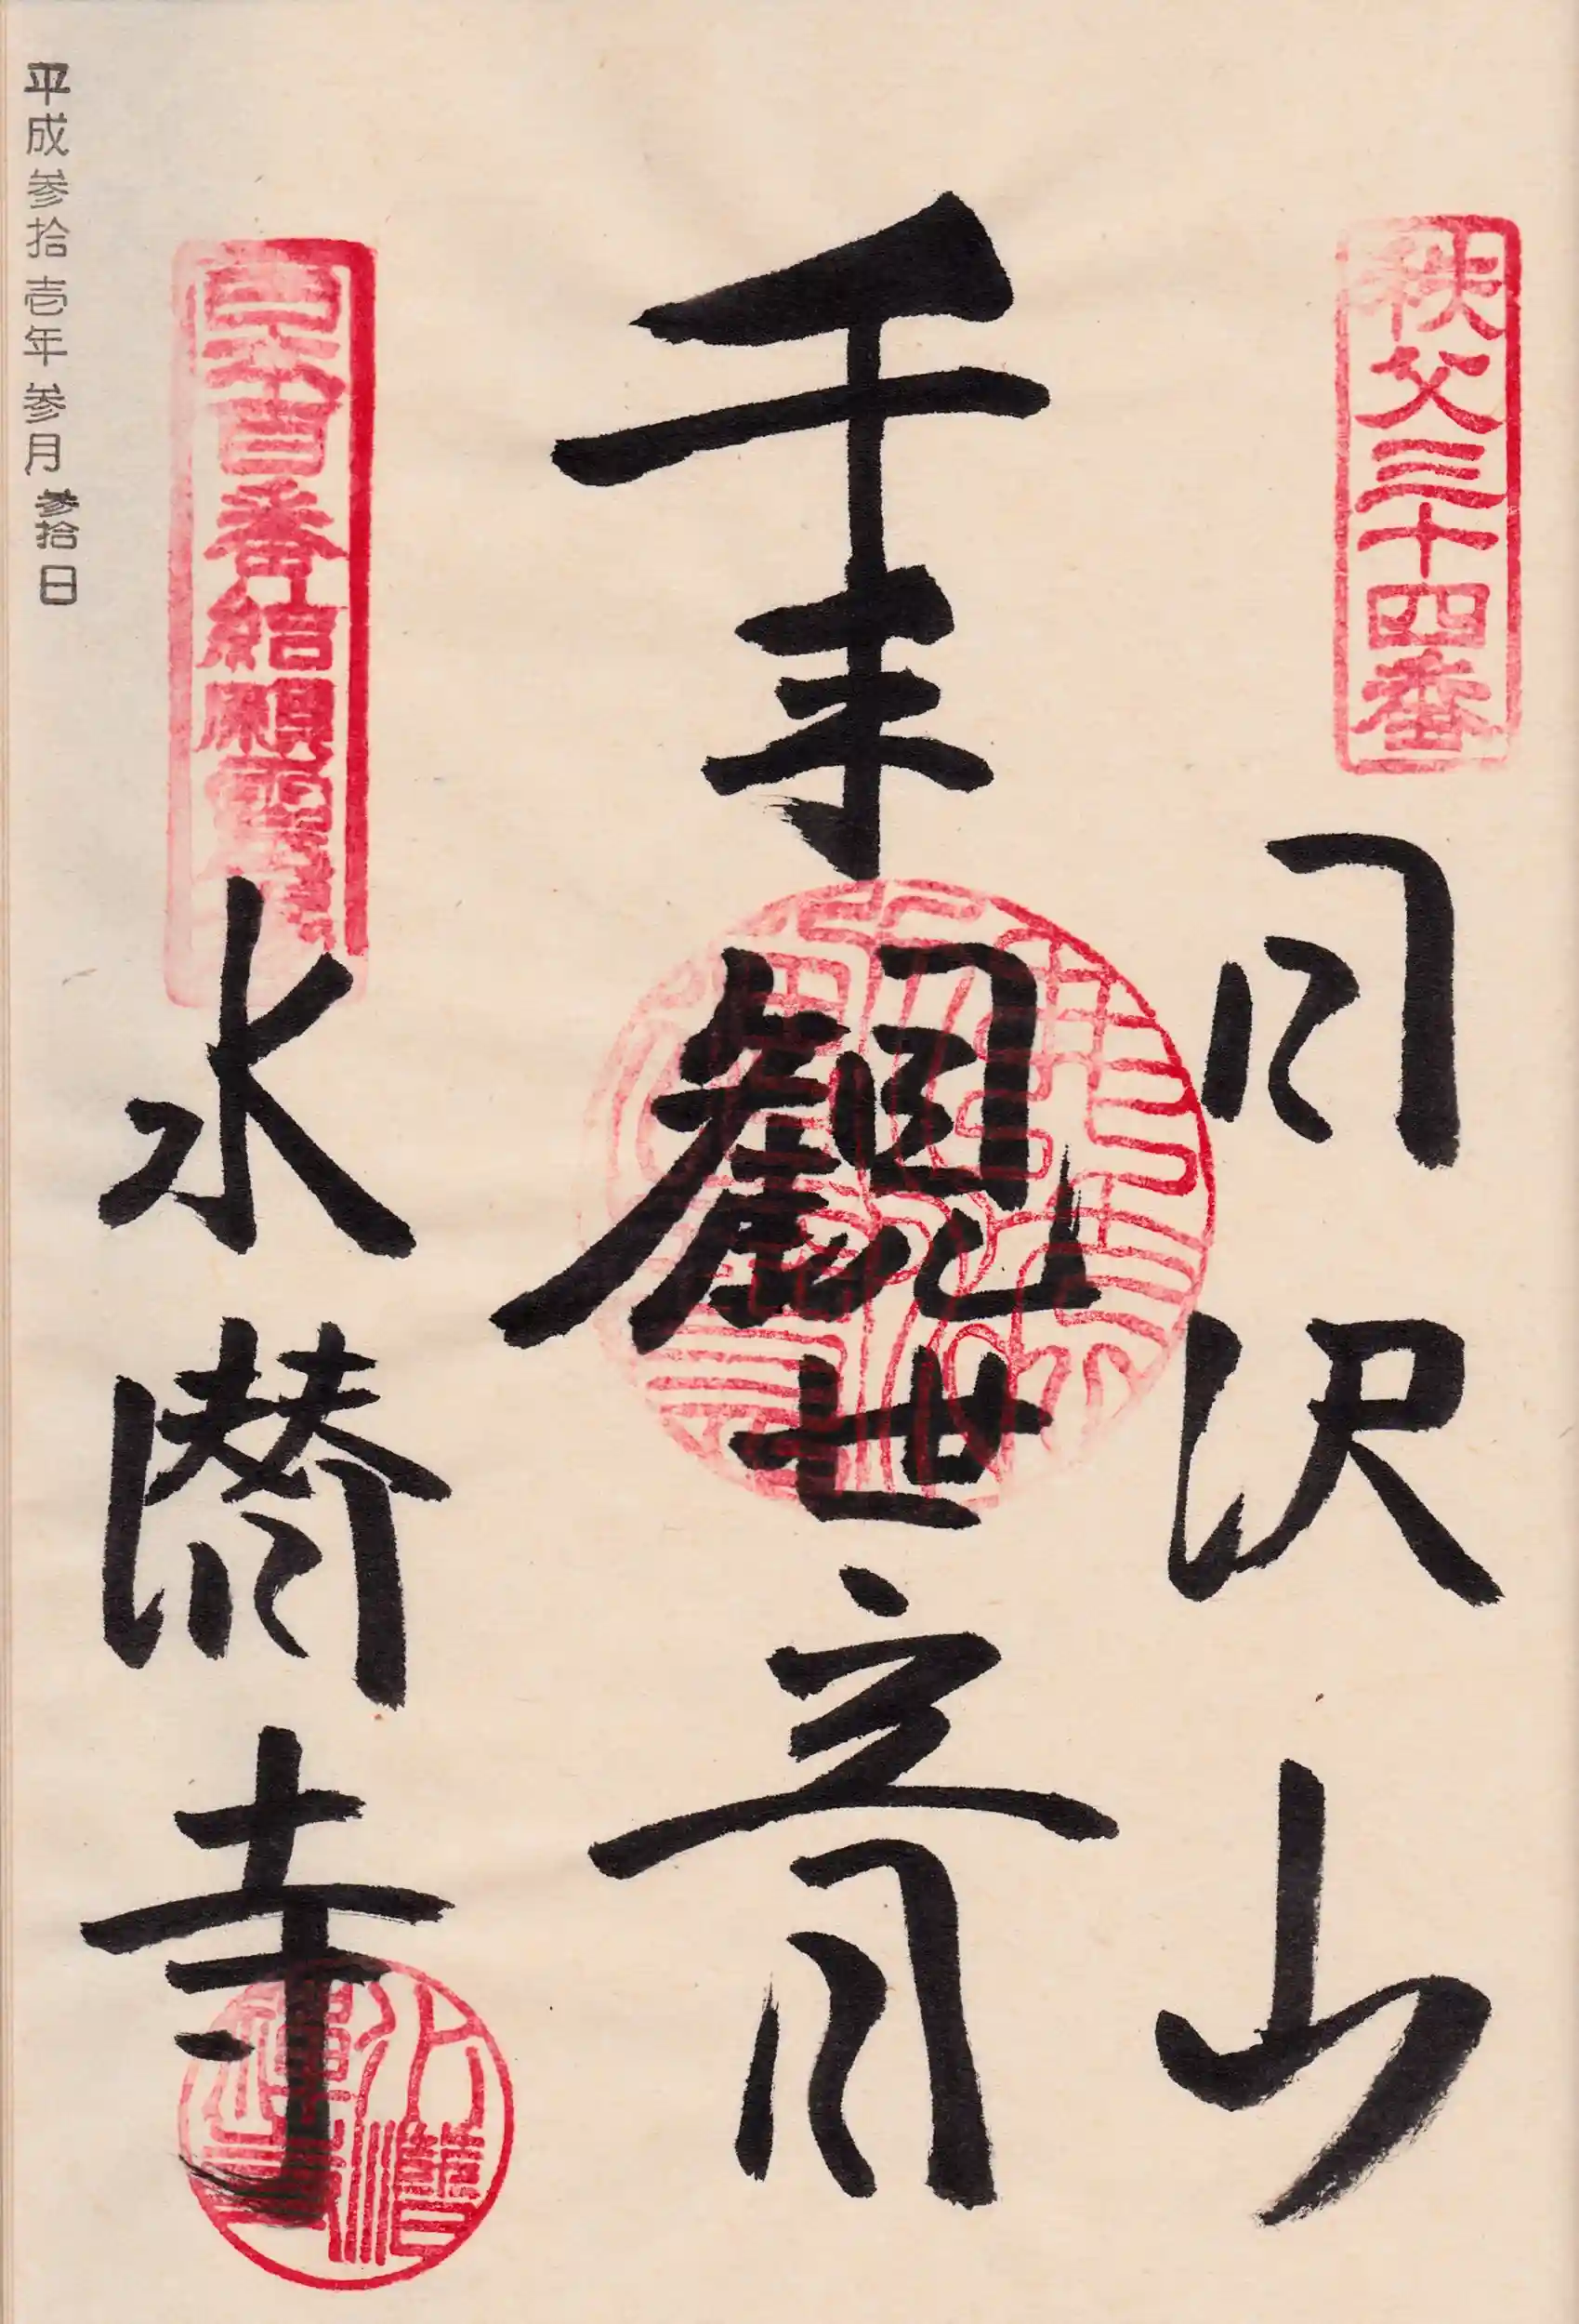 秩父三十四番
日沢山
千手観世音
日本百番結願
水潜寺
平成参拾壱年参月参拾日